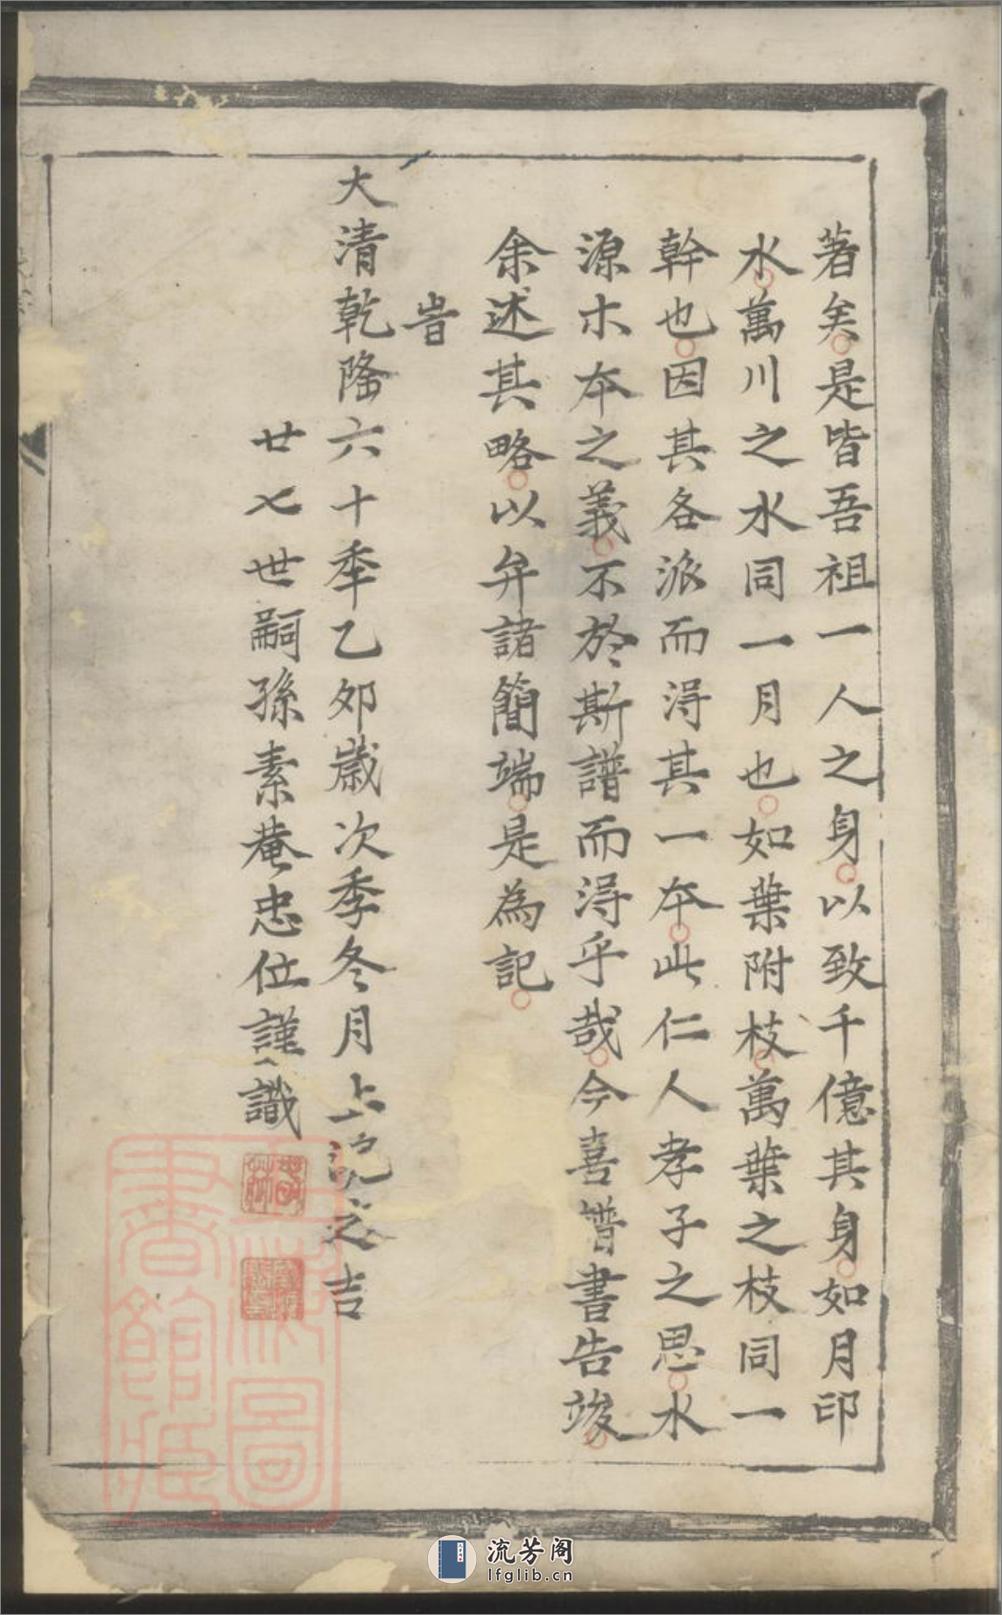 著矣是皆吾祖一人之身以致千億其身如月印
水萬川之水同一月也如葉附枝萬葉之枝同一
幹也因其各派而淂其一本此仁人孝子之思水
源木本之義不於斯譜而淂乎哉今喜譜書告竣
余述其略以弁諸簡端是為記
旹
大清乾隆六十秊乙夘歲次季冬月上浣之吉
廿七世嗣孫素菴忠位謹識
上海圖書館藏
流芳阁
lfglib.cn